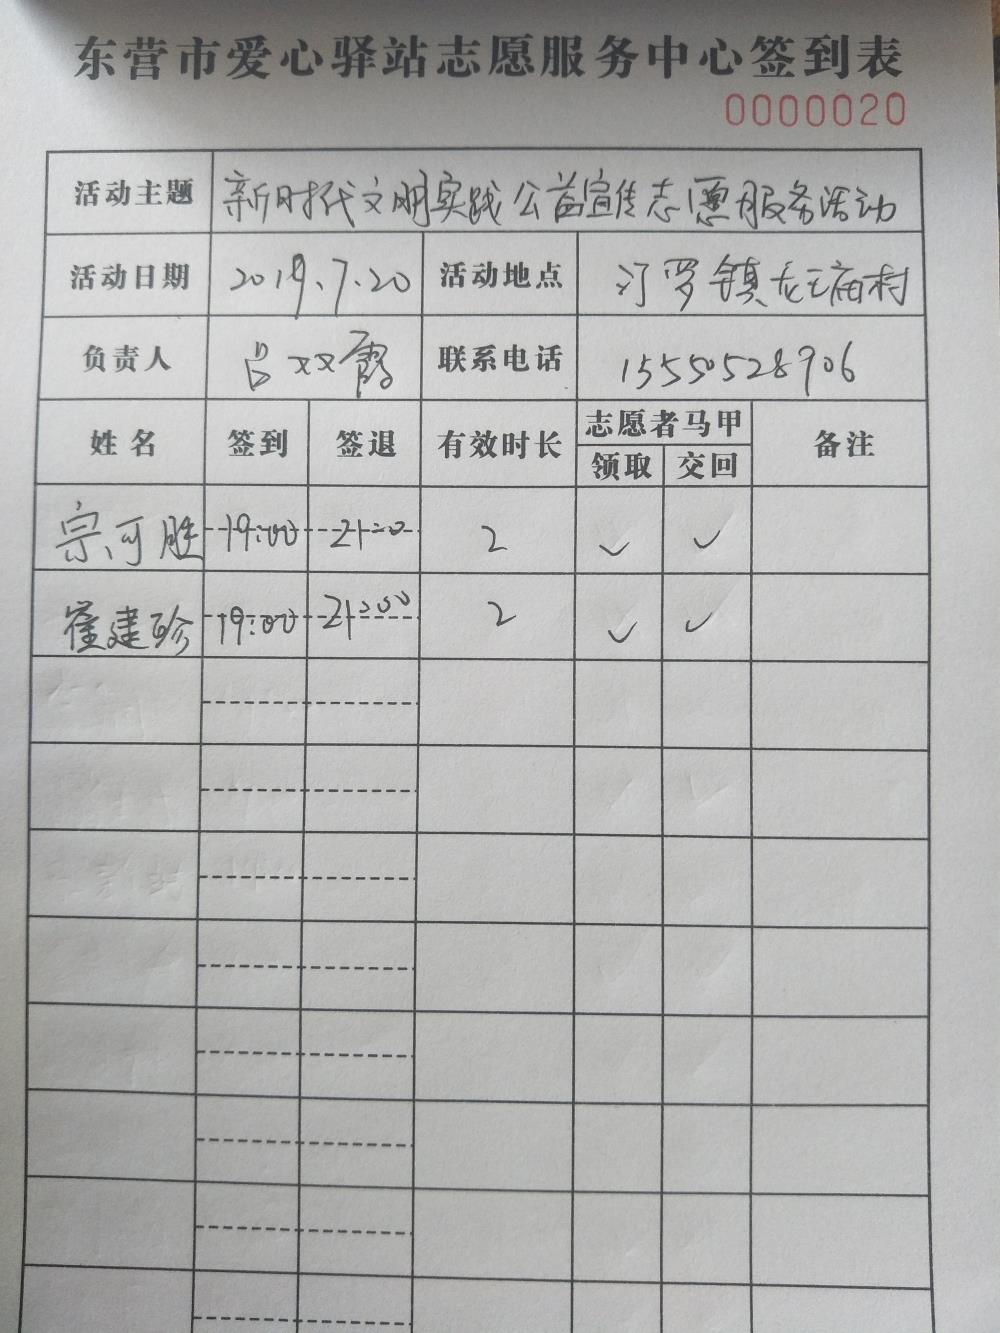 东营市爱心驿站志愿服务中心签到表
0000020
活动主题 新时代文明实践公益宣传志愿服务活动
活动日期 2019.7.20 活动地点 汀罗镇龙王庙村
负责人 吕双霞 联系电话 15550528906
姓名 签到 签退 有效时长 志愿者马甲 备注
领取 交回
宗可胜 19:00 21:00 2 ✓ ✓
崔建珍 19:00 21:00 2 ✓ ✓